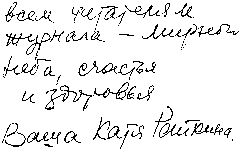 всем читателям
журнала – мирного
неба, счастья
и здоровья
Ваша Катя Райкина.